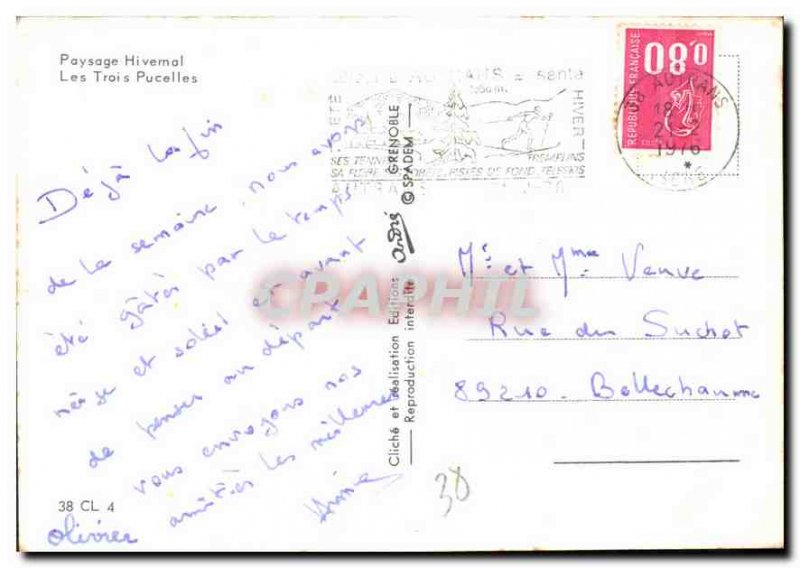 Paysage Hivernal
Les Trois Pucelles
Déjà la fin
de la semaine, nous avons
été gâtés par le temps
neige et soleil et avant
de penser au départ
vous envoyons nos
amitiés les meilleures
Olivier
38 CL 4
Cliché et réalisation Editions André GRENOBLE
Reproduction interdite © SPADEM
ETE
santa
HIVER
1050m
SES TENN
TREMPLINS
PISTES DE FOND, TELESKIS
0,80
REPUBLIQUE FRANÇAISE
38 AUTRANS
18
2
1976
*
ISERE
Mr et Mme Venve
Rue du Suchot
89210. Bellechaume
38
CPAPHIL